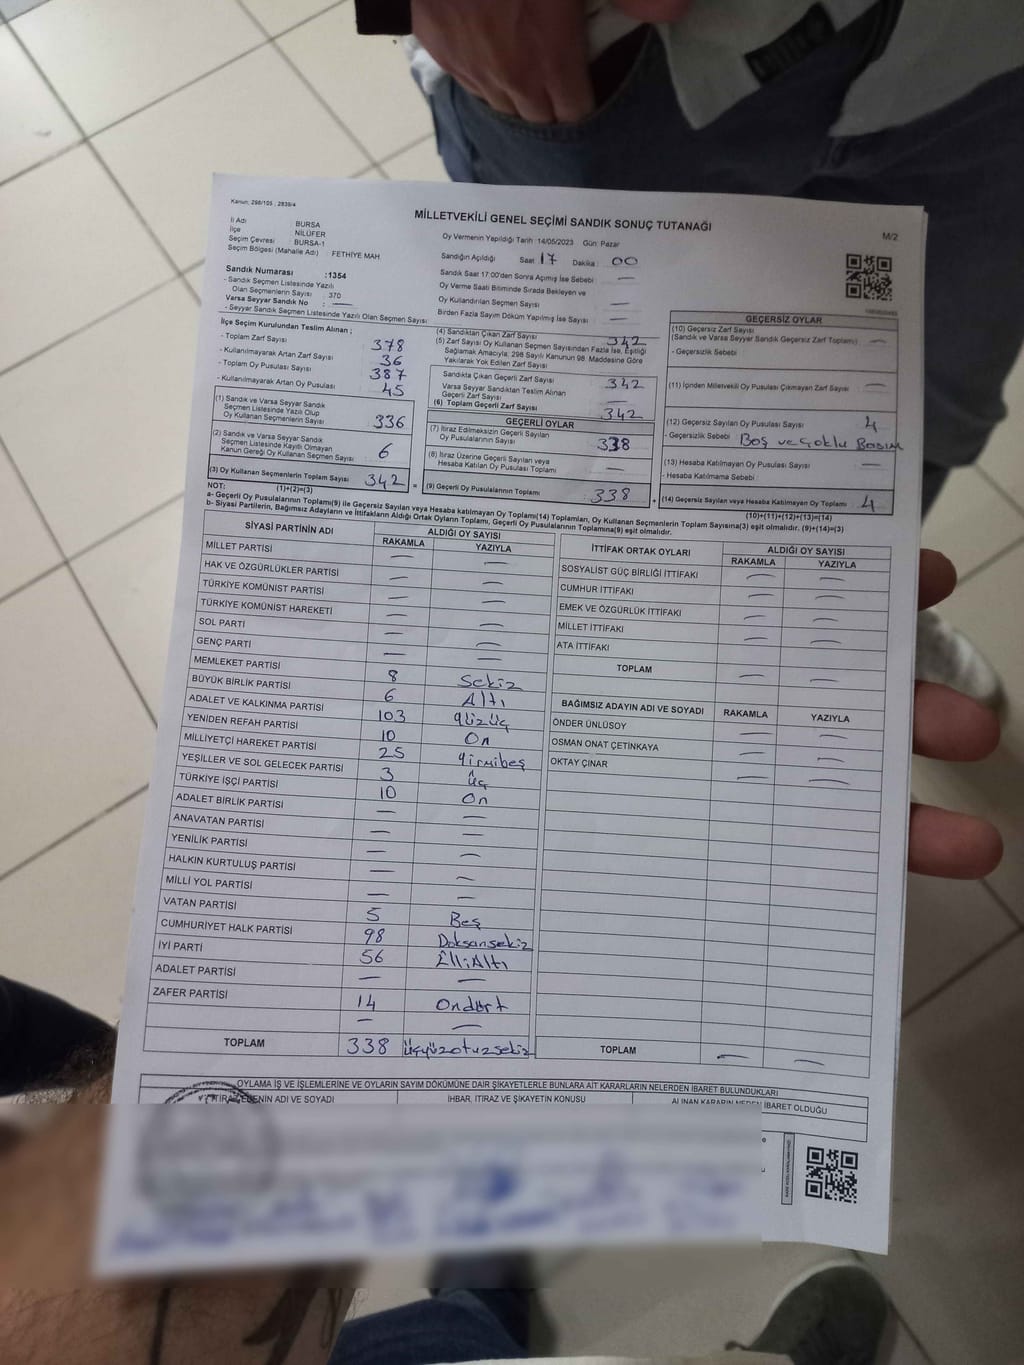 Kanun; 298/105 ; 2839/4
MİLLETVEKİLİ GENEL SEÇİMİ SANDIK SONUÇ TUTANAĞI
M/2
İli Adı : BURSA
İlçe : NİLÜFER
Seçim Çevresi : BURSA-1
Seçim Bölgesi (Mahalle Adı) : FETHİYE MAH
Sandık Numarası :1354
- Sandık Seçmen Listesinde Yazılı
Olan Seçmenlerin Sayısı : 370
Varsa Seyyar Sandık No : —
- Seyyar Sandık Seçmen Listesinde Yazılı Olan Seçmen Sayısı:
Oy Vermenin Yapıldığı Tarih :14/05/2023 Gün: Pazar
Sandığın Açıldığı Saat : 17 Dakika : 00
Sandık Saat 17:00'den Sonra Açılmış İse Sebebi : —
Oy Verme Saati Bitiminde Sırada Bekleyen ve
Oy Kullandırılan Seçmen Sayısı : —
Birden Fazla Sayım Döküm Yapılmış İse Sayısı : —
İlçe Seçim Kurulundan Teslim Alınan ;
- Toplam Zarf Sayısı : 378
- Kullanılmayarak Artan Zarf Sayısı : 36
- Toplam Oy Pusulası Sayısı : 387
- Kullanılmayarak Artan Oy Pusulası : 45
(1) Sandık ve Varsa Seyyar Sandık
Seçmen Listesinde Yazılı Olup
Oy Kullanan Seçmenlerin Sayısı : 336
(2) Sandık ve Varsa Seyyar Sandık
Seçmen Listesinde Kayıtlı Olmayan
Kanun Gereği Oy Kullanan Seçmen Sayısı : 6
(3) Oy Kullanan Seçmenlerin Toplam Sayısı : 342
(1)+(2)=(3)
(4) Sandıktan Çıkan Zarf Sayısı : 342
(5) Zarf Sayısı Oy Kullanan Seçmen Sayısından Fazla İse, Eşitliği
Sağlamak Amacıyla; 298 Sayılı Kanunun 98. Maddesine Göre
Yakılarak Yok Edilen Zarf Sayısı : —
Sandıkta Çıkan Geçerli Zarf Sayısı : 342
Varsa Seyyar Sandıktan Teslim Alınan
Geçerli Zarf Sayısı : —
(6) Toplam Geçerli Zarf Sayısı : 342
GEÇERLİ OYLAR
(7) İtiraz Edilmeksizin Geçerli Sayılan
Oy Pusulalarının Sayısı : 338
(8) İtiraz Üzerine Geçerli Sayılan veya
Hesaba Katılan Oy Pusulası Toplamı : —
(9) Geçerli Oy Pusulalarının Toplamı : 338
GEÇERSİZ OYLAR
(10) Geçersiz Zarf Sayısı
(Sandık ve Varsa Seyyar Sandık Geçersiz Zarf Toplamı) : —
- Geçersizlik Sebebi :
(11) İçinden Milletvekili Oy Pusulası Çıkmayan Zarf Sayısı : —
(12) Geçersiz Sayılan Oy Pusulası Sayısı : 4
- Geçersizlik Sebebi : Boş ve Çoklu Basım
(13) Hesaba Katılmayan Oy Pusulası Sayısı : —
- Hesaba Katılmama Sebebi :
(14) Geçersiz Sayılan veya Hesaba Katılmayan Oy Toplamı : 4
(10)+(11)+(12)+(13)=(14)
NOT:
a- Geçerli Oy Pusulalarının Toplamı(9) ile Geçersiz Sayılan veya Hesaba katılmayan Oy Toplamı(14) Toplamları, Oy Kullanan Seçmenlerin Toplam Sayısına(3) eşit olmalıdır. (9)+(14)=(3)
b- Siyasi Partilerin, Bağımsız Adayların ve İttifakların Aldığı Ortak Oyların Toplamı, Geçerli Oy Pusulalarının Toplamına(9) eşit olmalıdır.
SİYASİ PARTİNİN ADI ALDIĞI OY SAYISI
RAKAMLA YAZIYLA
MİLLET PARTİSİ — —
HAK VE ÖZGÜRLÜKLER PARTİSİ — —
TÜRKİYE KOMÜNİST PARTİSİ — —
TÜRKİYE KOMÜNİST HAREKETİ — —
SOL PARTİ — —
GENÇ PARTİ — —
MEMLEKET PARTİSİ 8 Sekiz
BÜYÜK BİRLİK PARTİSİ 6 Altı
ADALET VE KALKINMA PARTİSİ 103 Yüzüç
YENİDEN REFAH PARTİSİ 10 On
MİLLİYETÇİ HAREKET PARTİSİ 25 Yirmibeş
YEŞİLLER VE SOL GELECEK PARTİSİ 3 Üç
TÜRKİYE İŞÇİ PARTİSİ 10 On
ADALET BİRLİK PARTİSİ — —
ANAVATAN PARTİSİ — —
YENİLİK PARTİSİ — —
HALKIN KURTULUŞ PARTİSİ — —
MİLLİ YOL PARTİSİ — —
VATAN PARTİSİ 5 Beş
CUMHURİYET HALK PARTİSİ 98 Doksansekiz
İYİ PARTİ 56 ElliAltı
ADALET PARTİSİ — —
ZAFER PARTİSİ 14 Ondört
— —
TOPLAM 338 Üçyüzotuzsekiz
İTTİFAK ORTAK OYLARI ALDIĞI OY SAYISI
RAKAMLA YAZIYLA
SOSYALİST GÜÇ BİRLİĞİ İTTİFAKI — —
CUMHUR İTTİFAKI — —
EMEK VE ÖZGÜRLÜK İTTİFAKI — —
MİLLET İTTİFAKI — —
ATA İTTİFAKI — —
TOPLAM — —
BAĞIMSIZ ADAYIN ADI VE SOYADI RAKAMLA YAZIYLA
ÖNDER ÜNLÜSOY — —
OSMAN ONAT ÇETİNKAYA — —
OKTAY ÇINAR — —
TOPLAM — —
OYLAMA İŞ VE İŞLEMLERİNE VE OYLARIN SAYIM DÖKÜMÜNE DAİR ŞİKAYETLERLE BUNLARA AİT KARARLARIN NELERDEN İBARET BULUNDUKLARI
İTİRAZ EDENİN ADI VE SOYADI İHBAR, İTİRAZ VE ŞİKAYETİN KONUSU ALINAN KARARIN NEDEN İBARET OLDUĞU